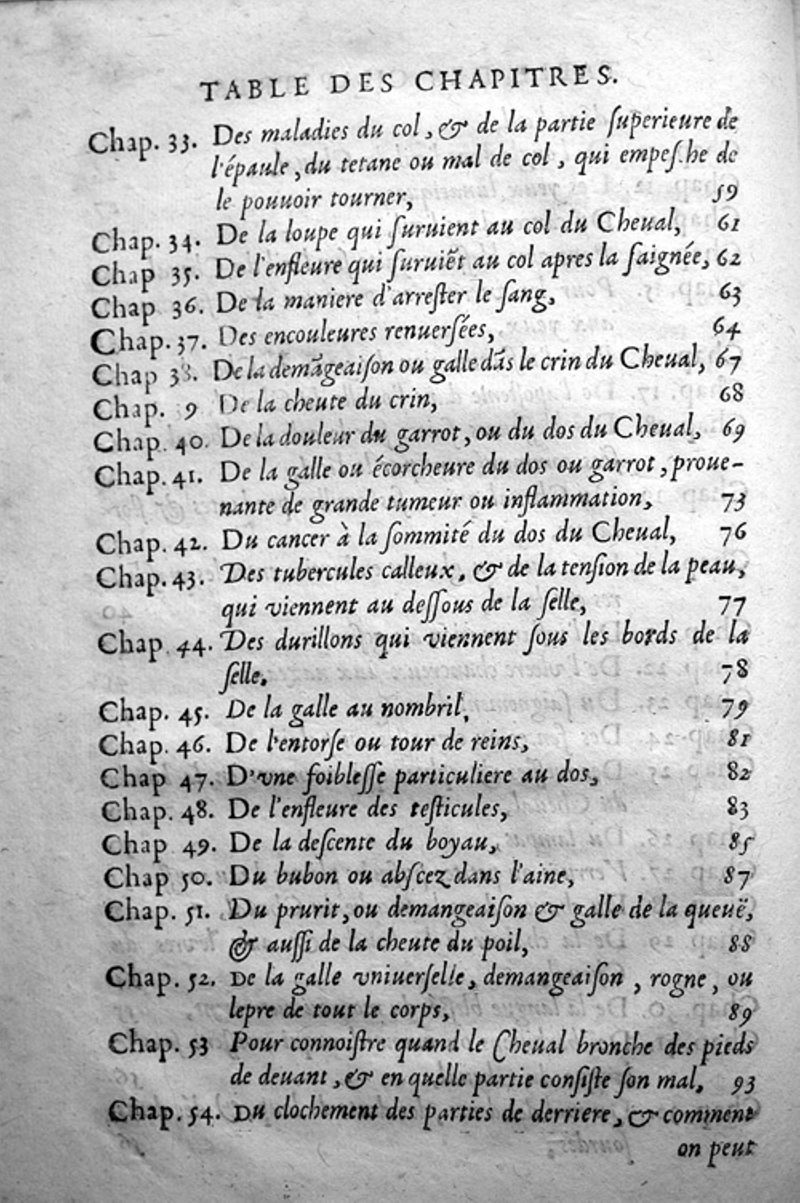 TABLE DES CHAPITRES.
Chap. 33. Des maladies du col, & de la partie ſuperieure de
l'épaule, du tetane ou mal de col, qui empeſche de
le pouuoir tourner, 59
Chap. 34. De la loupe qui ſuruient au col du Cheual, 61
Chap 35. De l'enfleure qui ſuruiẽt au col apres la ſaignée, 62
Chap 36. De la maniere d'arreſter le ſang, 63
Chap. 37. Des encouleures renuerſées, 64
Chap 38. De la demãgeaiſon ou galle dãs le crin du Cheual, 67
Chap. 9 De la cheute du crin, 68
Chap. 40. De la douleur du garrot, ou du dos du Cheual, 69
Chap. 41. De la galle ou écorcheure du dos ou garrot, proue-
nante de grande tumeur ou inflammation, 73
Chap. 42. Du cancer à la ſommité du dos du Cheual, 76
Chap. 43. Des tubercules calleux, & de la tenſion de la peau,
qui viennent au deſſous de la ſelle, 77
Chap. 44. Des durillons qui viennent ſous les bords de la
ſelle. 78
Chap. 45. De la galle au nombril, 79
Chap. 46. De l'entorſe ou tour de reins, 81
Chap 47. D'vne foibleſſe particuliere au dos, 82
Chap. 48. De l'enfleure des teſticules, 83
Chap 49. De la deſcente du boyau, 85
Chap 50. Du bubon ou abſcez dans l'aine, 87
Chap. 51. Du prurit, ou demangeaiſon & galle de la queuë,
& auſſi de la cheute du poil, 88
Chap. 52. De la galle vniuerſelle, demangeaiſon, rogne, ou
lepre de tout le corps, 89
Chap. 53 Pour connoiſtre quand le Cheual bronche des pieds
de deuant, & en quelle partie conſiſte ſon mal, 93
Chap. 54. Du clochement des parties de derriere, & comment
on peut